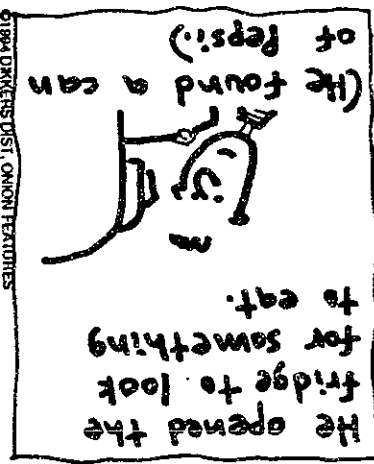 He opened the
fridge to look
for something
to eat.
(He found a can
of Pepsi.)
©1994 DIKKERS DIST., ONION FEATURES